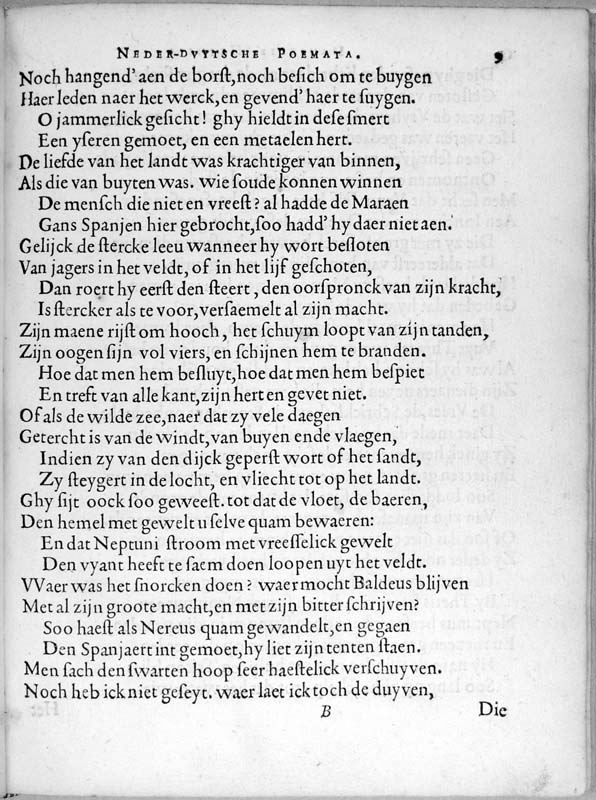 NEDER-DVYTSCHE POEMATA. 9
Noch hangend' aen de borſt, noch beſich om te buygen
Haer leden naer het werck, en gevend' haer te ſuygen.
O jammerlick geſicht! ghy hieldt in deſe ſmert
Een yſeren gemoet, en een metaelen hert.
De liefde van het landt was krachtiger van binnen,
Als die van buyten was. wie ſoude konnen winnen
De menſch die niet en vreeſt? al hadde de Maraen
Gans Spanjen hier gebrocht, ſoo hadd' hy daer niet aen.
Gelijck de ſtercke leeu wanneer hy wort beſloten
Van jagers in het veldt, of in het lijf geſchoten,
Dan roert hy eerſt den ſteert, den oorſpronck van zijn kracht,
Is ſtercker als te voor, verſaemelt al zijn macht.
Zijn maene rijſt om hooch, het ſchuym loopt van zijn tanden,
Zijn oogen ſijn vol viers, en ſchijnen hem te branden.
Hoe dat men hem beſluyt, hoe dat men hem beſpiet
En treft van alle kant, zijn hert en gevet niet.
Of als de wilde zee, naer dat zy vele daegen
Getercht is van de windt, van buyen ende vlaegen,
Indien zy van den dijck geperſt wort of het ſandt,
Zy ſteygert in de locht, en vliecht tot op het landt.
Ghy ſijt oock ſoo geweeſt. tot dat de vloet, de baeren,
Den hemel met gewelt u ſelve quam bewaeren:
En dat Neptuni ſtroom met vreeſſelick gewelt
Den vyant heeft te ſaem doen loopen uyt het veldt.
VVaer was het ſnorcken doen? waer mocht Baldeus blijven
Met al zijn groote macht, en met zijn bitter ſchrijven?
Soo haeſt als Nereus quam gewandelt, en gegaen
Den Spanjaert int gemoet, hy liet zijn tenten ſtaen.
Men ſach den ſwarten hoop ſeer haeſtelick verſchuyven.
Noch heb ick niet geſeyt. waer laet ick toch de duyven,
B Die